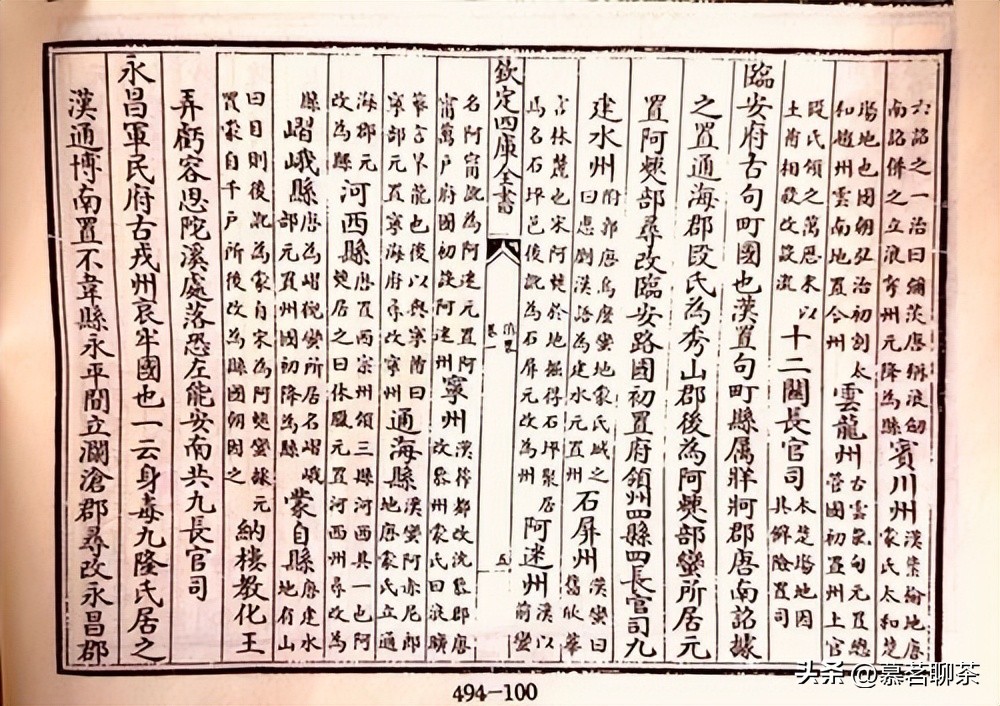 六詔之一治曰彌茨唐浪詔
南詔併之立浪穹州元降為縣
賓川州
漢葉榆地唐
蒙氏太和楚
場地也國朝弘治初割太
和趙州雲南地置今州
雲龍州
古雲龍甸元置總
管國初置州土官
段氏領之萬厯末以
土酋相殺改設流
十二關長官司
本楚場地因
其僻險置司
臨安府古句町國也漢置句町縣属牂牁郡唐南詔據
之置通海郡段氏為秀山郡後為阿僰部蠻所居元
置阿僰部尋改臨安路國初置府領州四縣四長官司九
建水州
附郭唐烏麽蠻地蒙氏城之
曰惠㔉漢語為建水元置州
石屏州
漢蠻曰
舊欣華
言林麓也宋阿僰於地掘得石坪聚居
焉名石坪邑後訛為石屏元改為州
阿迷州
漢以
前蠻
欽定四庫全書
滇略
卷一
五
名阿甯訛為阿迷元置阿
甯萬户府國初設阿迷州
寧州
漢都改縣郡唐
改黎州蒙氏曰浪曠
蠻言旱龍也後以與寧酋曰
寧部元置寧海府尋改寧州
通海縣
漢蠻阿赤尼郎
地唐蒙氏立通
海郡元
改為縣
河西縣
唐置西宗州領三縣河西其一也阿
僰居之曰休臘元置河西州尋改為
縣
嶍峨縣
唐為嶍猊蠻所居名嶍峨
部元置州國初降為縣
蒙自縣
唐建水
地有山
曰目則後訛為蒙自宋為阿僰蠻據元
置蒙自千户所後改為縣國朝因之
納樓教化王
弄虧容思陀溪處落恐左能安南共九長官司
永昌軍民府古戎州哀牢國也一云身毒九隆氏居之
漢通博南置不韋縣永平間立瀾滄郡尋改永昌郡
494-100
头条 @慕茗聊茶